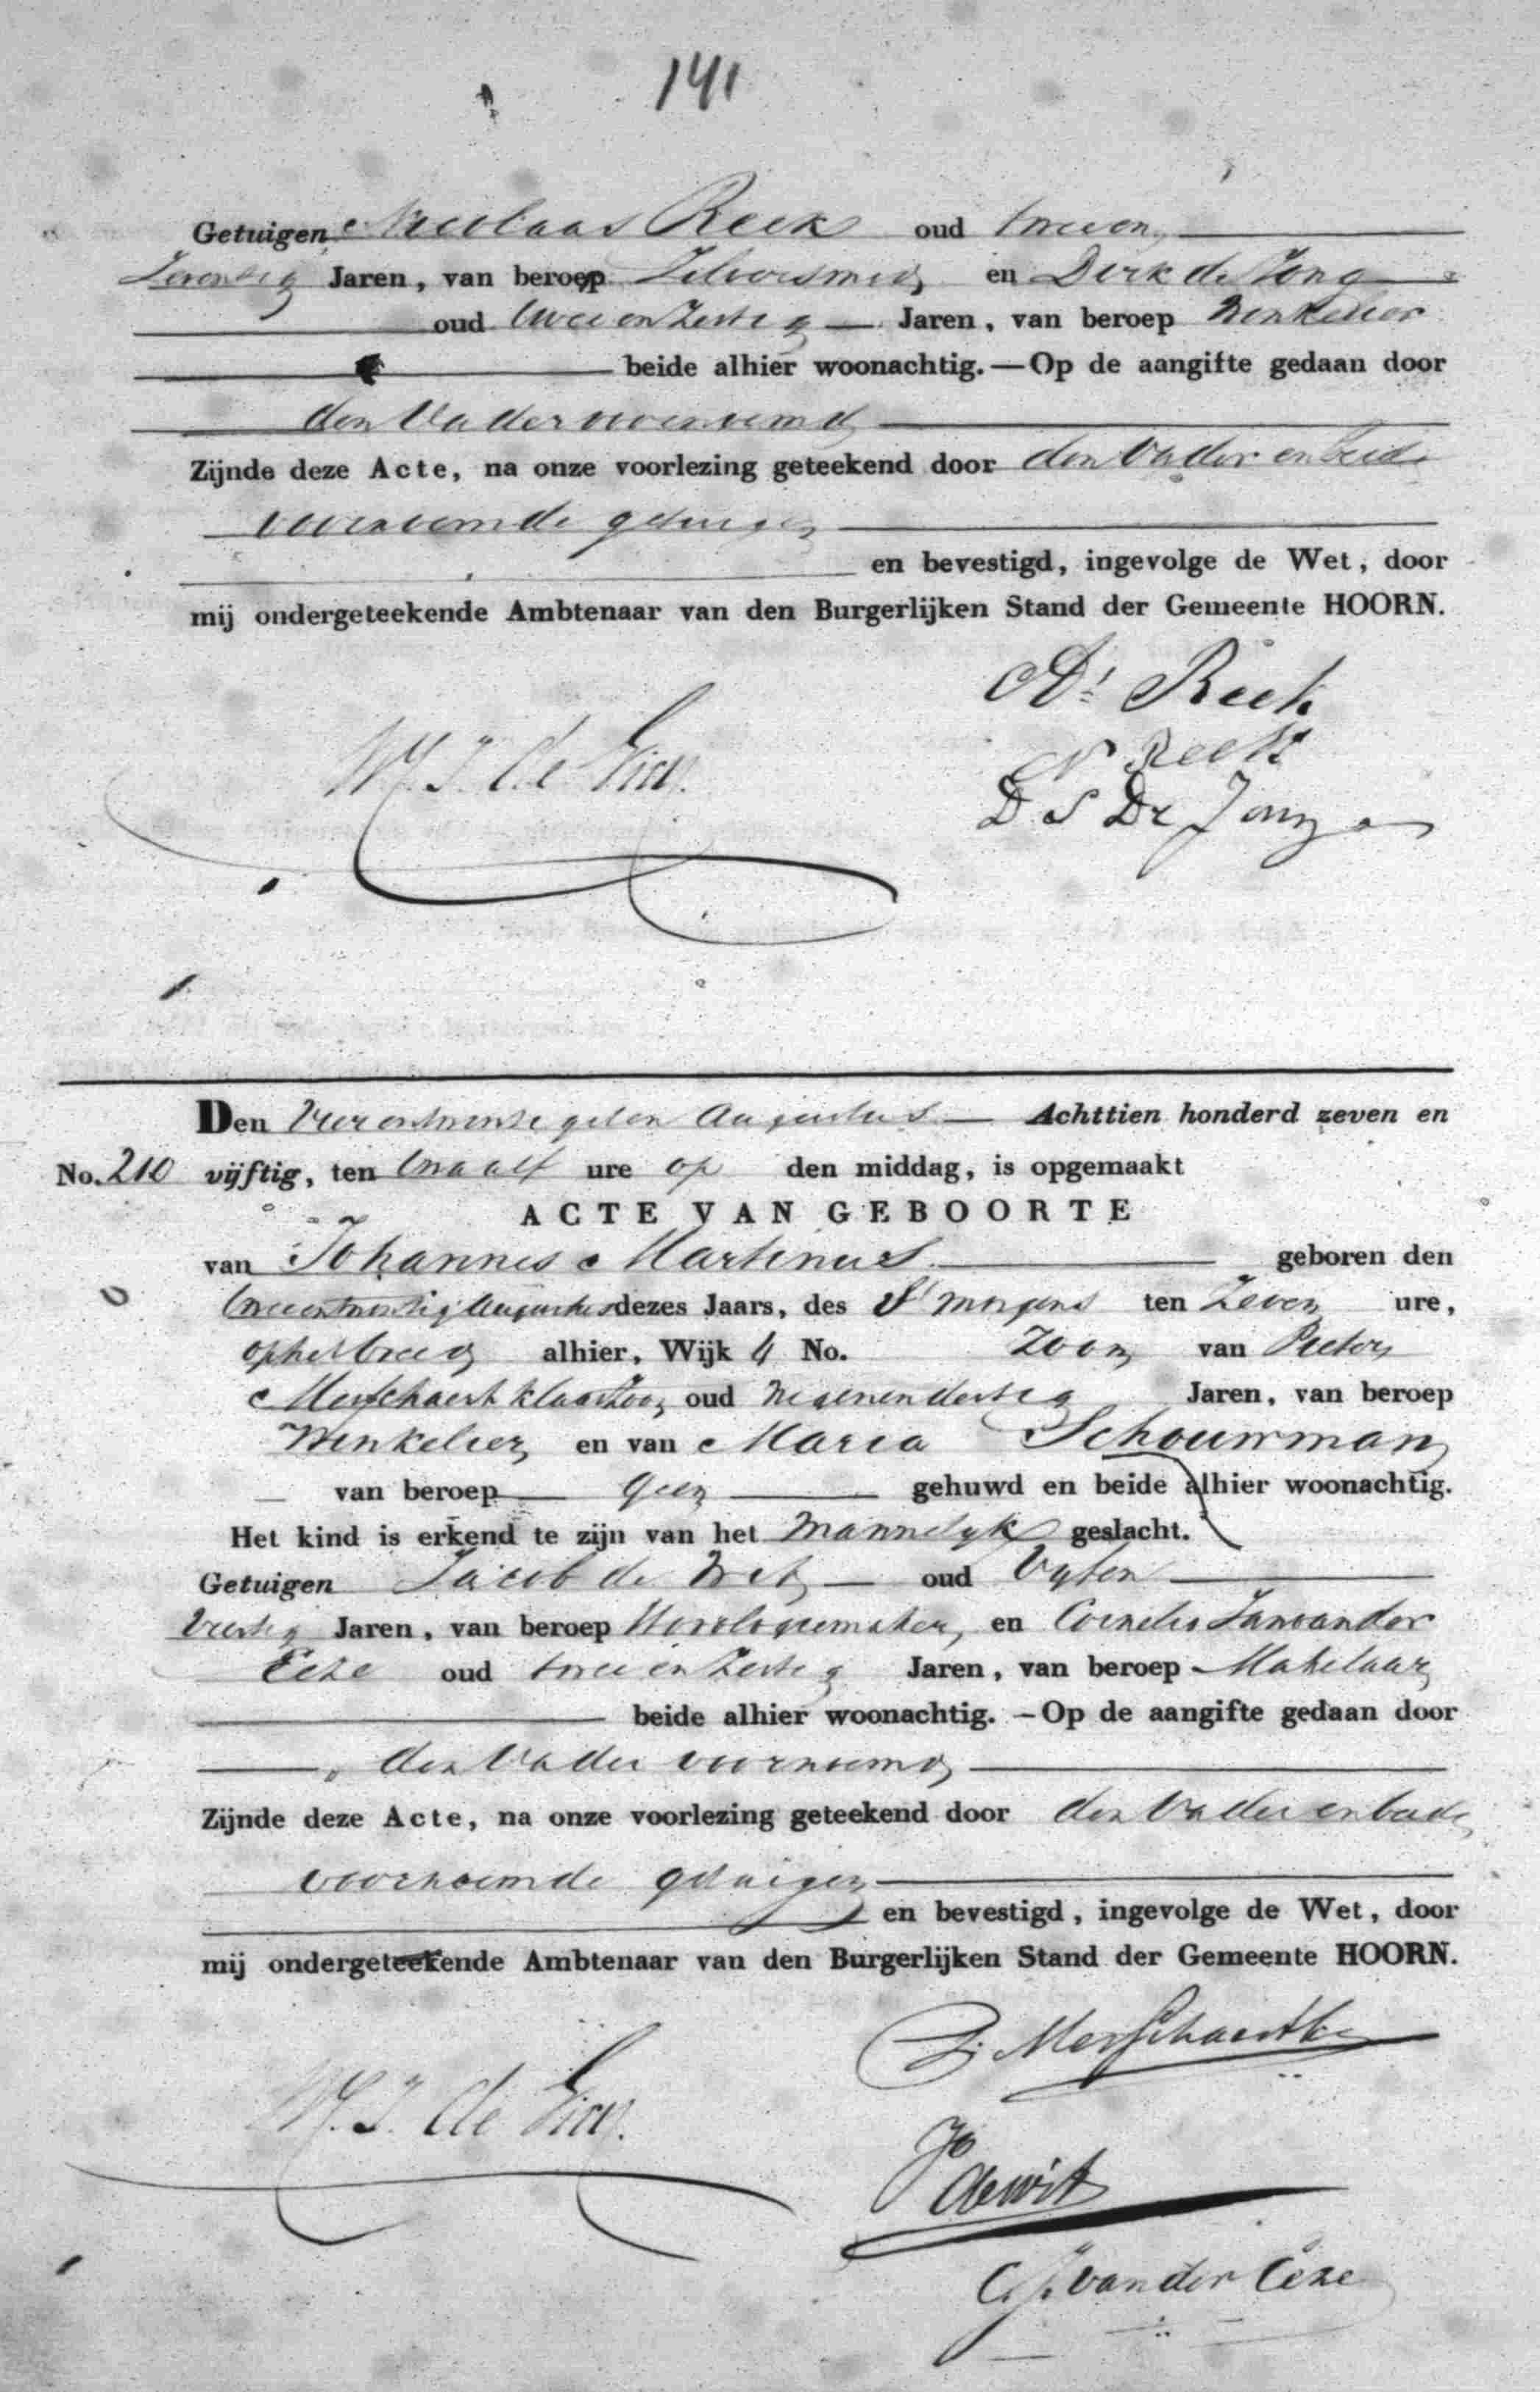 141
Getuigen Nicolaas Reek oud tweeen
Zeventig Jaren, van beroep Zilversmid en Dirk de Jong
oud twee en Zestig Jaren, van beroep Winkelier
beide alhier woonachtig. — Op de aangifte gedaan door
den Vader voornoemd
Zijnde deze Acte, na onze voorlezing geteekend door den Vader en beide
voornoemde getuigen
en bevestigd, ingevolge de Wet, door
mij ondergeteekende Ambtenaar van den Burgerlijken Stand der Gemeente HOORN.
Reek
N Reek
W. J. de
D S De Jong
Den Vier entwintigsten Augustus Achttien honderd zeven en
No. 210 vijftig, ten twaalf ure op den middag, is opgemaakt
ACTE VAN GEBOORTE
van Johannes Martinus geboren den
tweeentwintig Augustus dezes Jaars, des S' morgens ten Zeven ure,
op het breed alhier, Wijk 4 No. Zoon van Pieter
Merschaert Klaaszoon oud Negenendertig Jaren, van beroep
Winkelier en van Maria Schouwman
van beroep geen gehuwd en beide alhier woonachtig.
Het kind is erkend te zijn van het Mannelyk geslacht.
Getuigen Jacob de Wit oud Vyfen
Veertig Jaren, van beroep Horologiemaker, en Cornelis Jan van der
Ceze oud twee en Zestig Jaren, van beroep Makelaar
beide alhier woonachtig. — Op de aangifte gedaan door
den Vader voornoemd
Zijnde deze Acte, na onze voorlezing geteekend door den Vader en beide
voornoemde getuigen
en bevestigd, ingevolge de Wet, door
mij ondergeteekende Ambtenaar van den Burgerlijken Stand der Gemeente HOORN.
P. Merschaert
W. J. de
J de Wit
C. J. van der Ceze